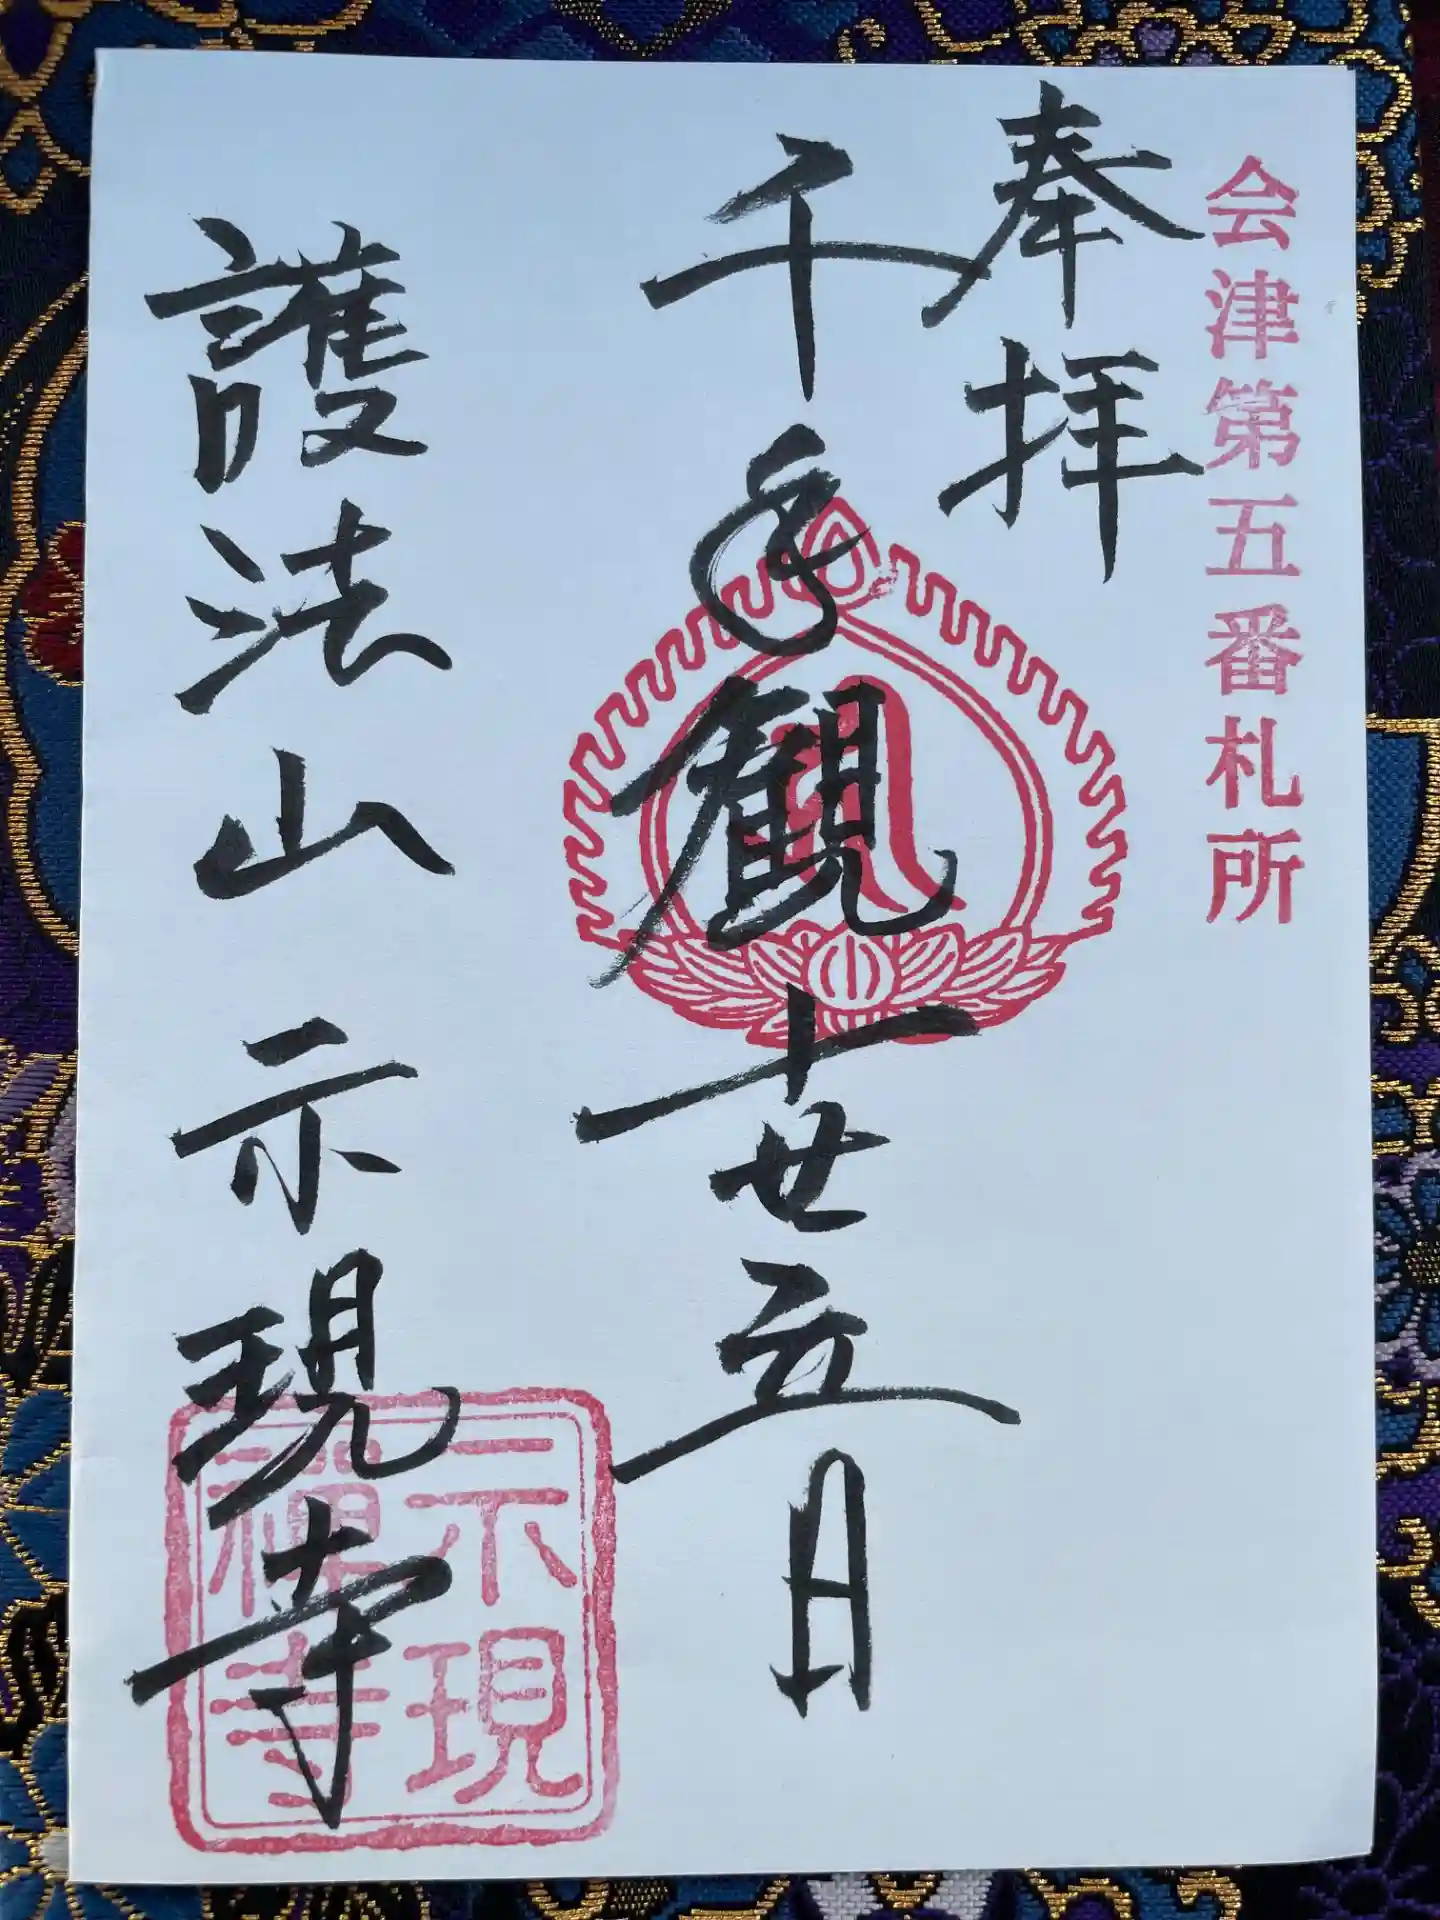 会津第五番札所
奉拝
千手観世音
護法山示現寺
示現
禅寺